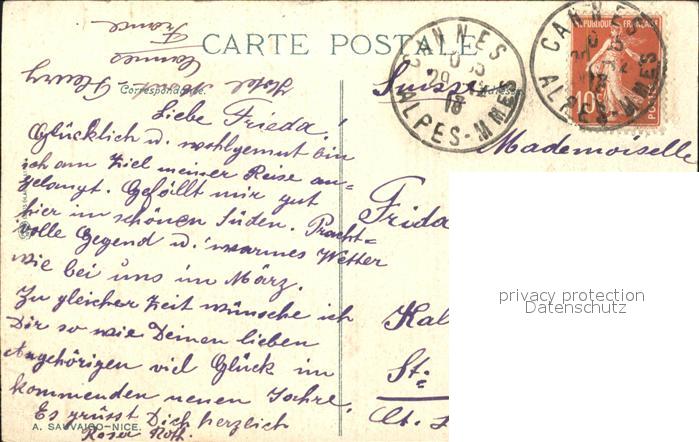 CARTE POSTALE
Correspondance
Adresse
Hotel Fleury
Cannes
France
Suisse
CANNES
29
18
ALPES-MMES
CANNES
18
ALPES-MMES
RÉPUBLIQUE FRANÇAISE
10c
POSTES
Liebe Frieda!
Glücklich u. wohlgemut bin
ich am Ziel meiner Reise an=
gelangt. Gefällt mir gut
hier im schönen Süden. Pracht=
volle Gegend u. warmes Wetter
wie bei uns im März.
Zu gleicher Zeit wünsche ich
Dir so wie Deinen lieben
Angehörigen viel Glück im
kommenden neuen Jahre.
Es grüsst Dich herzlich
Rosa Roth.
A. SAUVAIGO-NICE.
Mademoiselle
Frida
Kal
St:
Ct.
privacy protection
Datenschutz